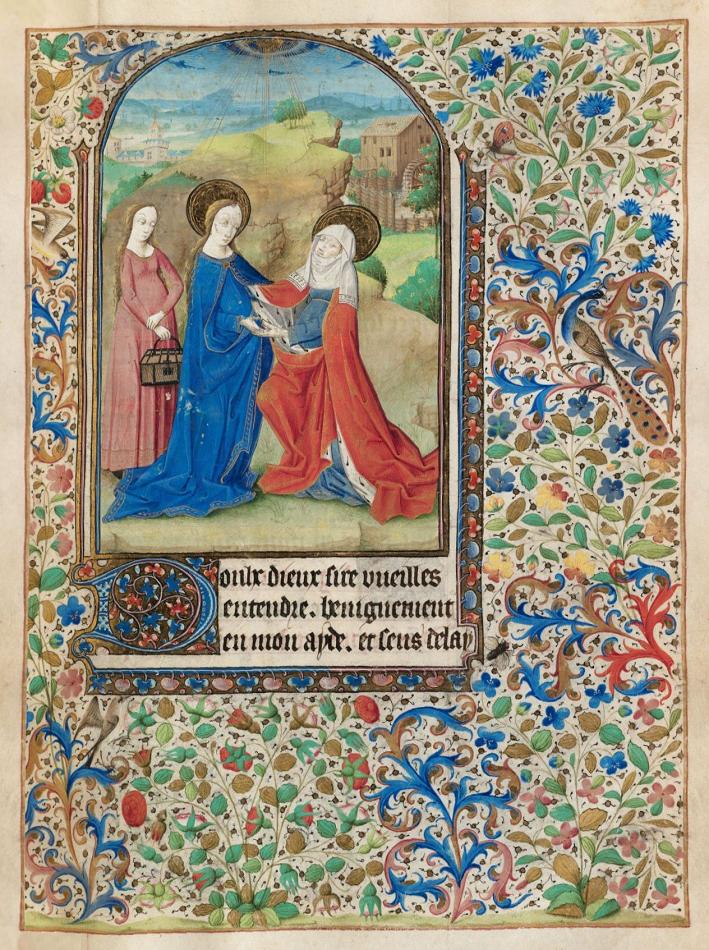 Doulx dieux sire vueilles
entendre. benignement
en mon ayde. et sens delay